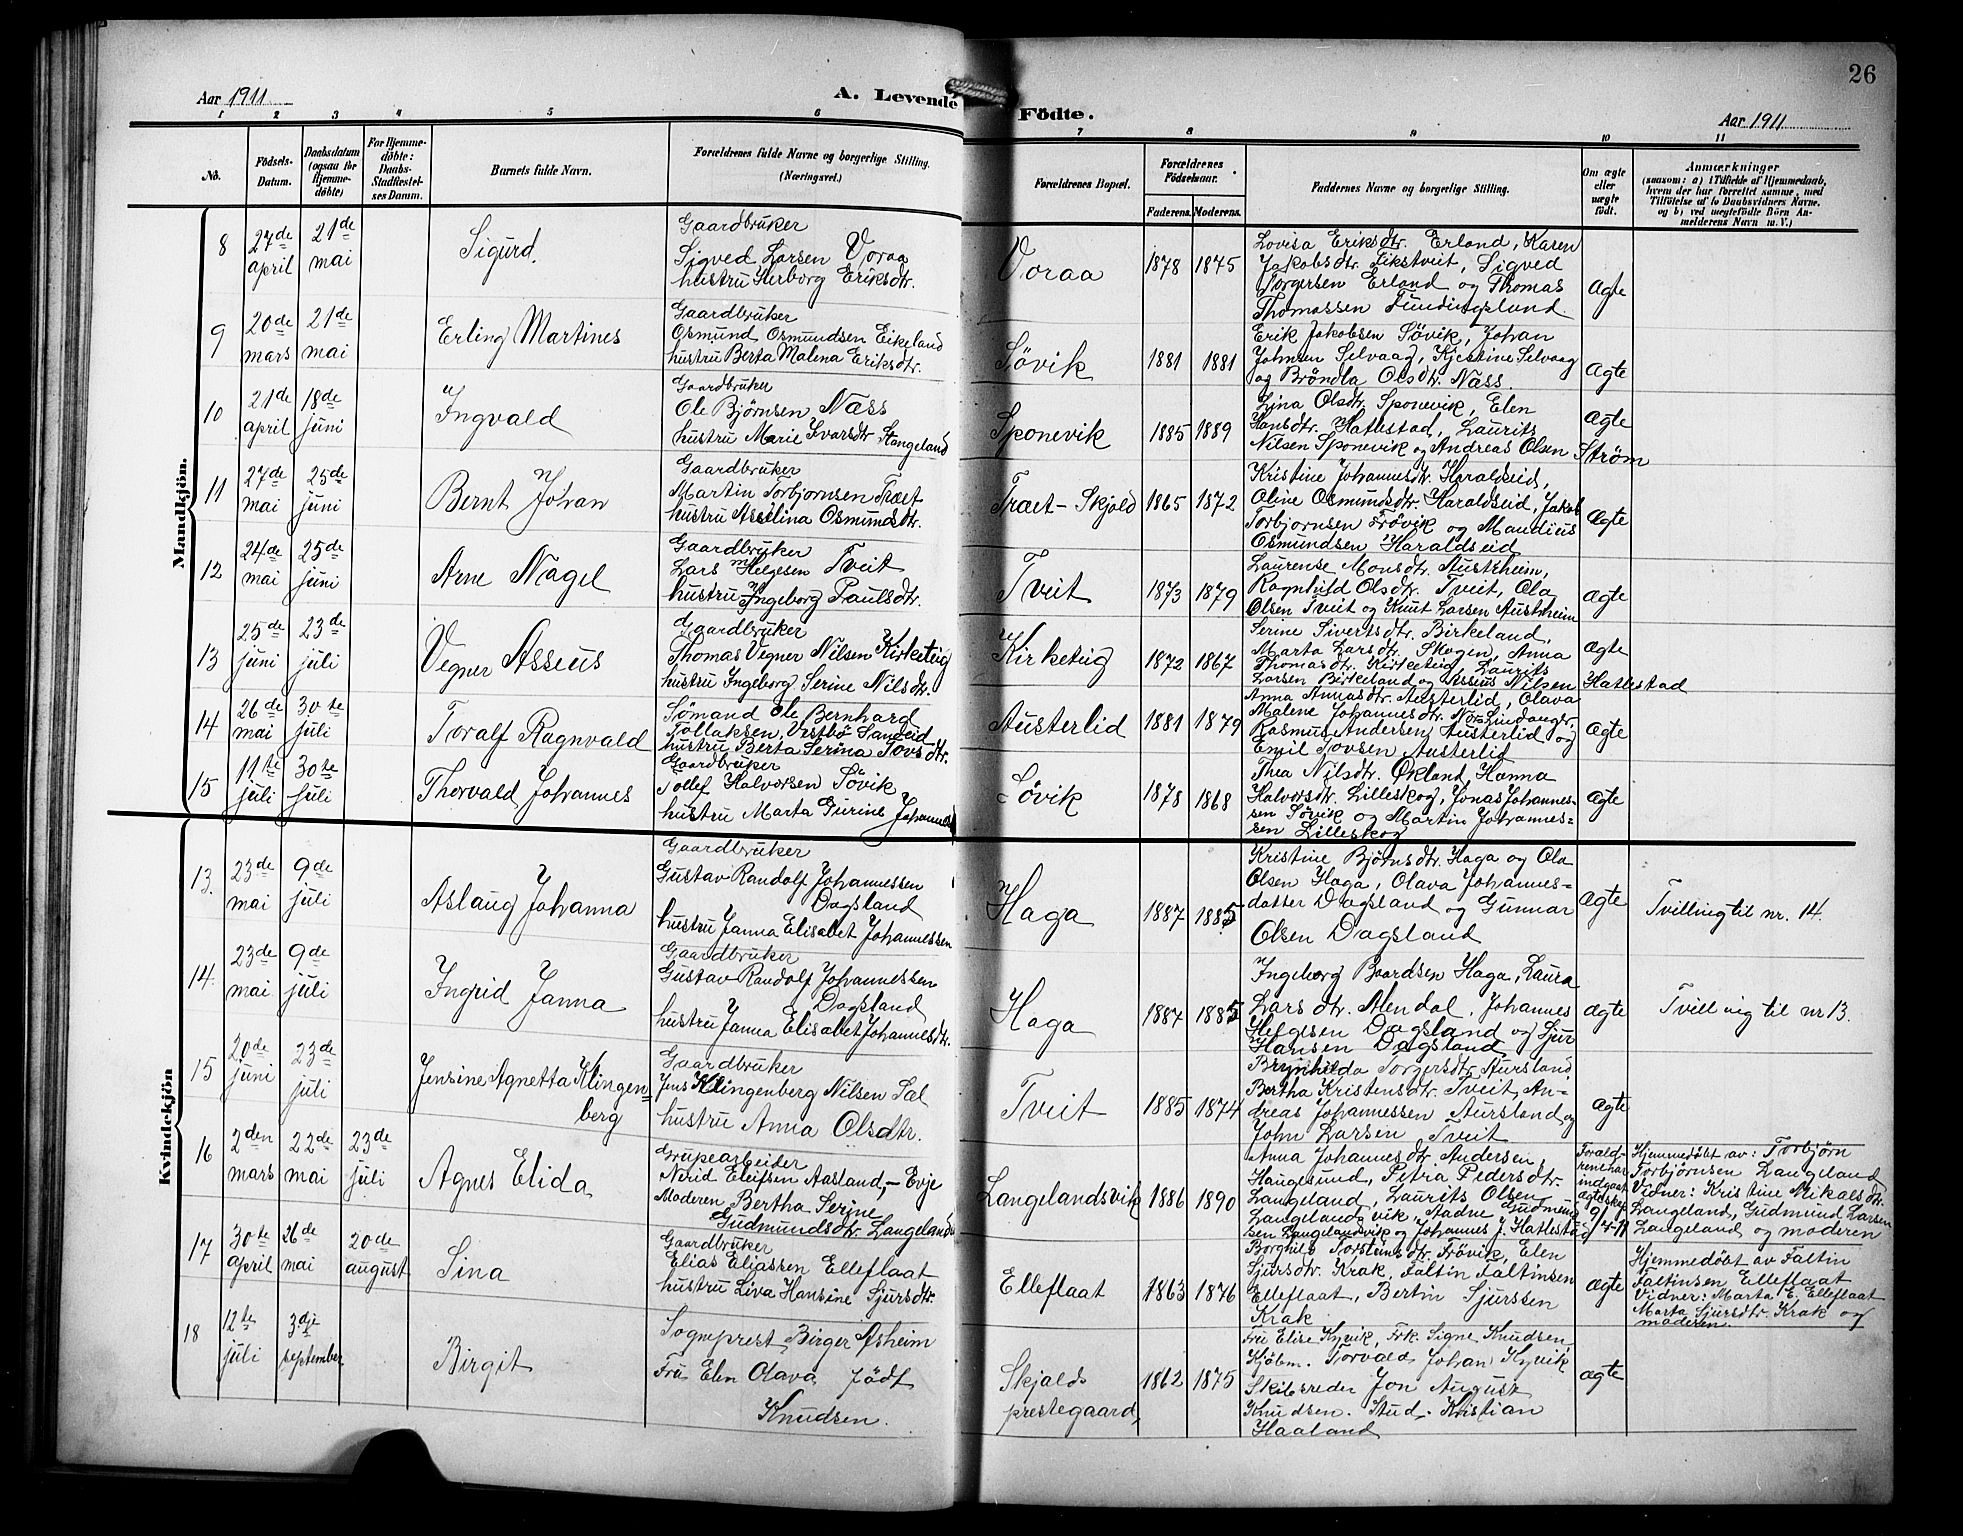 26
Aar 1911
A. Levende
Födte.
Aar 1911
1 2 3 4 5 6
7 8 9 10 11
No.
Födsels-
Datum.
Daabsdatum
(ogsaa for
Hjemme-
döbte)
For Hjemme-
döbte:
Daabs-
Stadfæstel-
ses Datum.
Barnets fulde Navn.
Forældrenes fulde Navne og borgerlige Stilling.
(Næringsvei.)
Forældrenes Bopæl.
Forældrenes
Födselsaar.
Faderens. Moderens.
Faddernes Navne og borgerlige Stilling.
Om ægte
eller
uægte
födt.
Anmærkninger
(saasom: a) i Tilfælde af Hjemmedaab,
hvem der har forrettet samme, med
Tilföielse af to Daabsvidners Navne.
og b) ved uegtefödte Börn An-
melderens Navn m. V.)
Mandkjön.
8
27de
april
21de
mai
Sigurd.
Gaardbruker
Sigved Larsen Voraa
hustru Herborg Eriksdtr.
Voraa
1878 1875
Lovisa Eriksdtr. Erland, Karen
Jakobsdtr. Eikstveit, Sigved
Torgersen Erland og Thomas
Thomassen Tundingsland.
ægte
9
20de
mars
21de
mai
Erling Martines
Gaardbruker
Osmund Osmundsen Eikeland
hustru Berta Malena Eriksdtr.
Søvik
1881 1881
Erik Jakobsen Søvik, Johan
Johnsen Selvaag, Kjerstine Selvaag
og Brøndla Olsdtr. Næss.
ægte
10
21de
april
18de
juni
Ingvald
Gaardbruker
Ole Bjørnsen Næss
hustru Marie Ivarsdtr Stangeland
Sponevik
1885 1889
Lina Olsdtr. Sponevik, Elen
Hansdtr. Hatlestad, Laurits
Nilsen Sponevik og Andreas Olsen Strøm
ægte
11
27de
mai
25de
juni
Bernt Johan
Gaardbruker
Martin Torbjornsen Træt
hustru Asselina Osmundsdtr.
Træt - Skjold
1865 1872
Kristine Johannesdtr. Haraldseid,
Oline Osmundsdtr. Haraldseid, Jakob
Torbjornsen Frøvik og Mandius
Osmundsen Haraldseid
ægte
12
24de
mai
25de
juni
Arne Nagel
Gaardbruker
Lars Helgesen Tveit
hustru Ingeborg Paulsdtr.
Tveit
1873 1879
Laurense Monsdtr. Austrheim,
Ragnhild Olsdtr. Tveit, Ola
Olsen Tveit og Knut Larsen Austrheim
ægte
13
25de
juni
23de
juli
Vegner Asseus
Gaardbruker
Thomas Vegner Nilsen Kirketeig
hustru Ingeborg Serine Nilsdtr.
Kirketeig
1872 1867
Serine Sivertsdtr. Birkeland,
Marta Larsdtr. Skogen, Anna
Thomasdtr. Kirketeig, Laurits
Larsen Birkeland og Asseus Nilsen Hatlestad
ægte
14
26de
mai
30te
juli
Toralf Ragnvald
Sømand Ole Bernhard
Tollaksen, Vestbø Sandeid
hustru Berta Serina Tovsdtr.
Austerlid
1881 1879
Anna Annasdtr. Austerlid, Olava
Malene Johannesdtr. Nor-Lindanger,
Rasmus Andersen Austerlid og
Emil Tovsen Austerlid
ægte
15
11te
juli
30te
juli
Thorvald Johannes
Gaardbruker
Tollef Halvorsen Søvik
hustru Marta Gurine Johannes
Søvik
1878 1868
Thea Nilsdtr. Økland, Hanna
Halvorsdtr. Lilleskog, Jonas Johannes=
sen Søvik og Martin Johannes=
sen Lilleskog
ægte
Kvindekjön
13.
23de
mai
9de
juli
Aslaug Johanna
Gaardbruker
Gustav Randolf Johannessen
Dagsland
hustru Janna Elisabet Johannessen
Haga
1887 1885
Kristine Bjørnsdtr. Haga og Ola
Olsen Haga, Olava Johannes=
datter Dagsland og Gunnar
Olsen Dagsland
ægte
Tvilling til nr. 14.
14.
23de
mai
9de
juli
Ingrid Janna
Gaardbruker
Gustav Randolf Johannessen
Dagsland
hustru Janna Elisabet Johannesdtr.
Haga
1887 1885
Ingeborg Baardsen Haga, Laura
Larsdtr. Alendal, Johannes
Helgesen Dagsland og Sjur
Hansen Dagsland
ægte
Tvilling til nr 13.
15
20de
juni
23de
juli
Jensine Agnetta Klingen=
berg
Gaardbruker
Jens Klingenberg Nilsen Sæl
hustru Anna Olsdtr.
Tveit
1885 1874
Brynhilda Torgersdtr. Aursland,
Bertha Kristensdtr. Tveit, An=
dreas Johannessen Aursland og
John Larsen Tveit
ægte
16
2den
mars
22de
mai
23de
juli
Agnes Elida
Grupearbeider
Nerid Eleifsen Aasland, - Evje
Moderen Bertha Serine
Gudmundsdtr. Langeland
Langelandsvik
1886 1890
Anna Johannesdtr. Andersen,
Haugesund, Petra Pedersdtr.
Langeland, Laurits Olsen
Langelandsvik, Aadne Gudmund=
sen Langelandsvik og Johannes J. Hatlestad
Foræld-
rene har
indgaat
ægteskap
9/4-11
Hjemmedøbt av: Torbjørn
Torbjørnsen Langeland
Vidner: Kristine Mikalsdtr.
Langeland, Gudmund Larsen
Langeland og moderen
17
30te
april
26de
mai
20de
august
Sina
Gaardbruker
Elias Eliassen Elleflaat
hustru Liva Hansine Sjursdtr.
Elleflaat
1863 1876
Borghild Torsteinsdtr. Frøvik, Elen
Sjursdtr. Krak, Faltin Faltinsen
Elleflaat, Bertin Sjurssen
Krak
ægte
Hjemmedøbt av Faltin
Faltinsen Elleflaat
Vidner: Marta E. Elleflaat
Marta Sjursdtr. Krak og
moderen.
18
12te
juli
3dje
september
Birgit
Sogneprest Birger Asheim
Fru Elen Olava født
Knudsen.
Skjolds
prestegaard,
1862 1875
Fru Elise Kyvik, Frk. Signe Knudsen,
Kjøbm. Torvald Johan Kyvik
Skibsreder Jon August
Knudsen. Stud. Kristian
Haaland
ægte